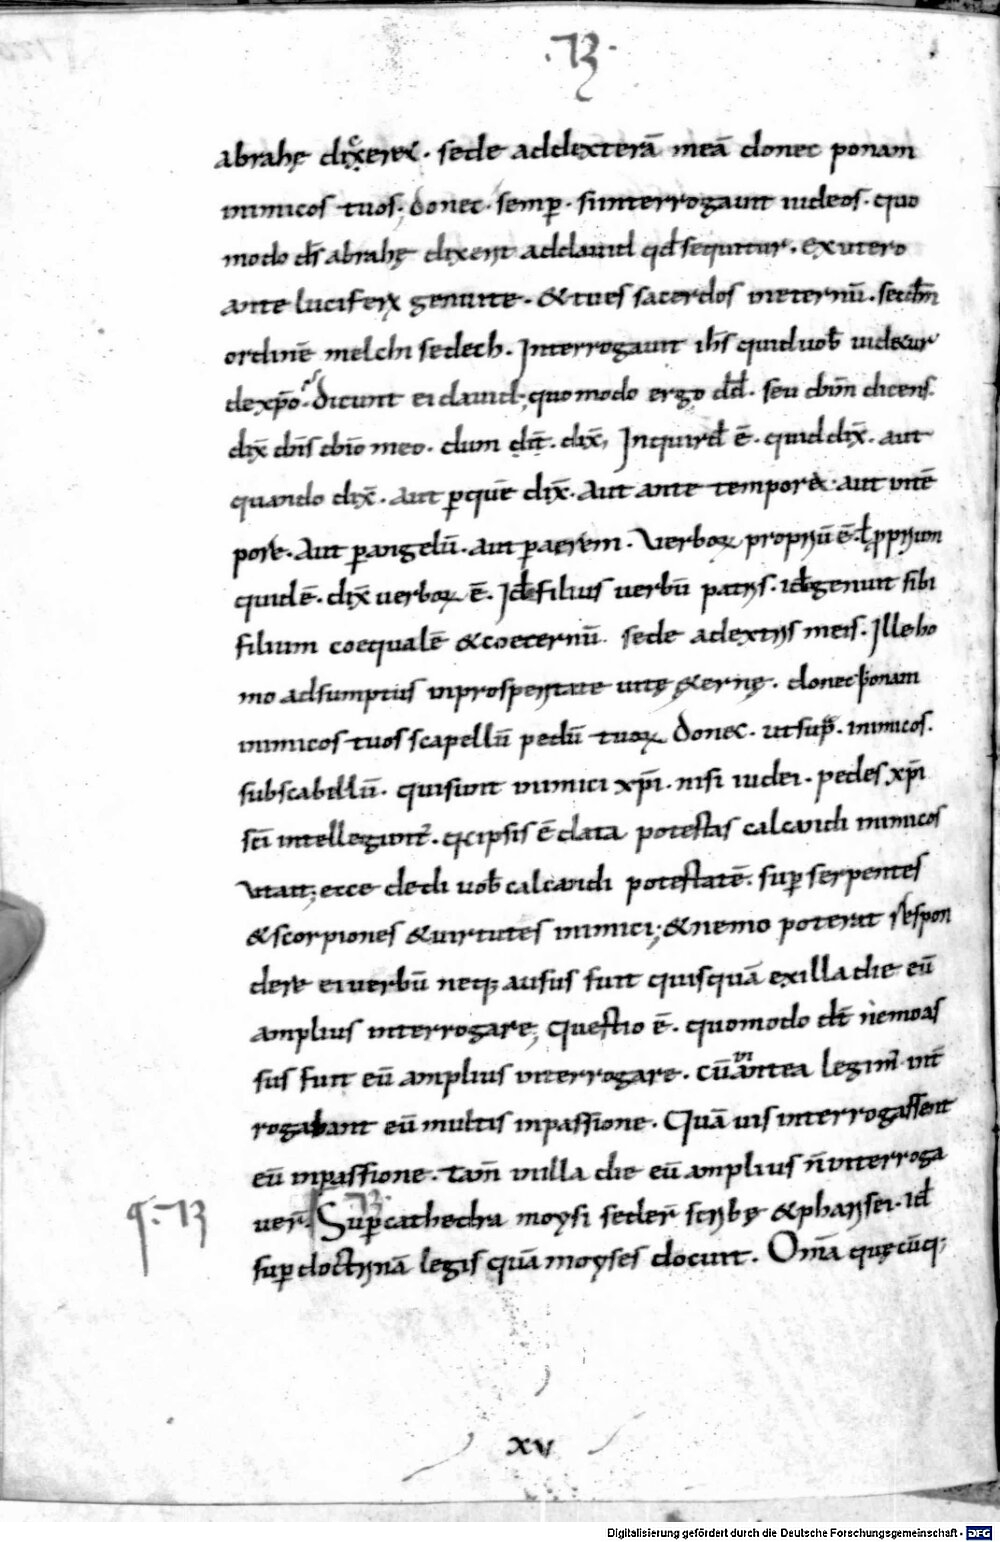 .73.
abrahę dixerat. sede addexterā meā donec ponam
inimicos tuos; donec. semp̄. si interrogauit iudeos. quo
modo dſ̄ abrahę dixerit addauid qd̄ sequitur. exutero
ante luciferꝝ genuite. & tues sacerdos ineternū. secdm̄
ordinē melchisedech. Interrogauit ihſ̄ quid uob̄ uidetur
dexp̄o. Dicunt ei dauid; quomodo ergo dd̄. seu dn̄m dicens.
dix̄ dn̄s dn̄o meo. dum dn̄t. dix̄, Inquird̄ ē. quid dix̄. aut
quando dix̄. aut p̱quē dix̄. Aut ante tempora. aut intē
pore. Aut p̱angelū. aut paerem. Verboꝝ propriū ē.
quid ē. dix̄ uerboꝝ ē. Id̄ filius uerbū patris. id̄ genuit sibi
filium coequalē & coeternū. sede adextris meis. Ille ho
mo adsumptus inprosperitate uitę &ernę. donec ponam
inimicos tuos scapellū pedū tuoꝝ Donec. ut sup̄. inimicos.
subscabellū. qui sunt inimici xp̄i. nisi iudei. pedes xp̄i
sc̄i intelleguntˀ. q̱ ipsis ē data potestas calcandi inimicos
Vt ait; ecce dedi uob̄ calcandi potestatē. sup̱ serpentes
& scorpiones & uirtutes inimici; & nemo poterat respon
dere ei uerbū neq; ausus fuit quisquā exilla die eū
amplius interrogare; Questio ē. quomodo dt̄ nemo as
sus fuit eū amplius interrogare. cū inantea legimˀ int̄
rogabant eū multis inpassione. Quā uis interrogassent
eū inpassione. Tam̄ inilla die eū amplius n̄ interroga
uer̄. Sup̱ cathedra moysi seder̄ scribę & pharisei. id̄
¶.73
73.
sup̱ doctrinā legis quā moyses docuit. Om̄a quęcūq;
xv
Digitalisierung gefördert durch die Deutsche Forschungsgemeinschaft - DFG